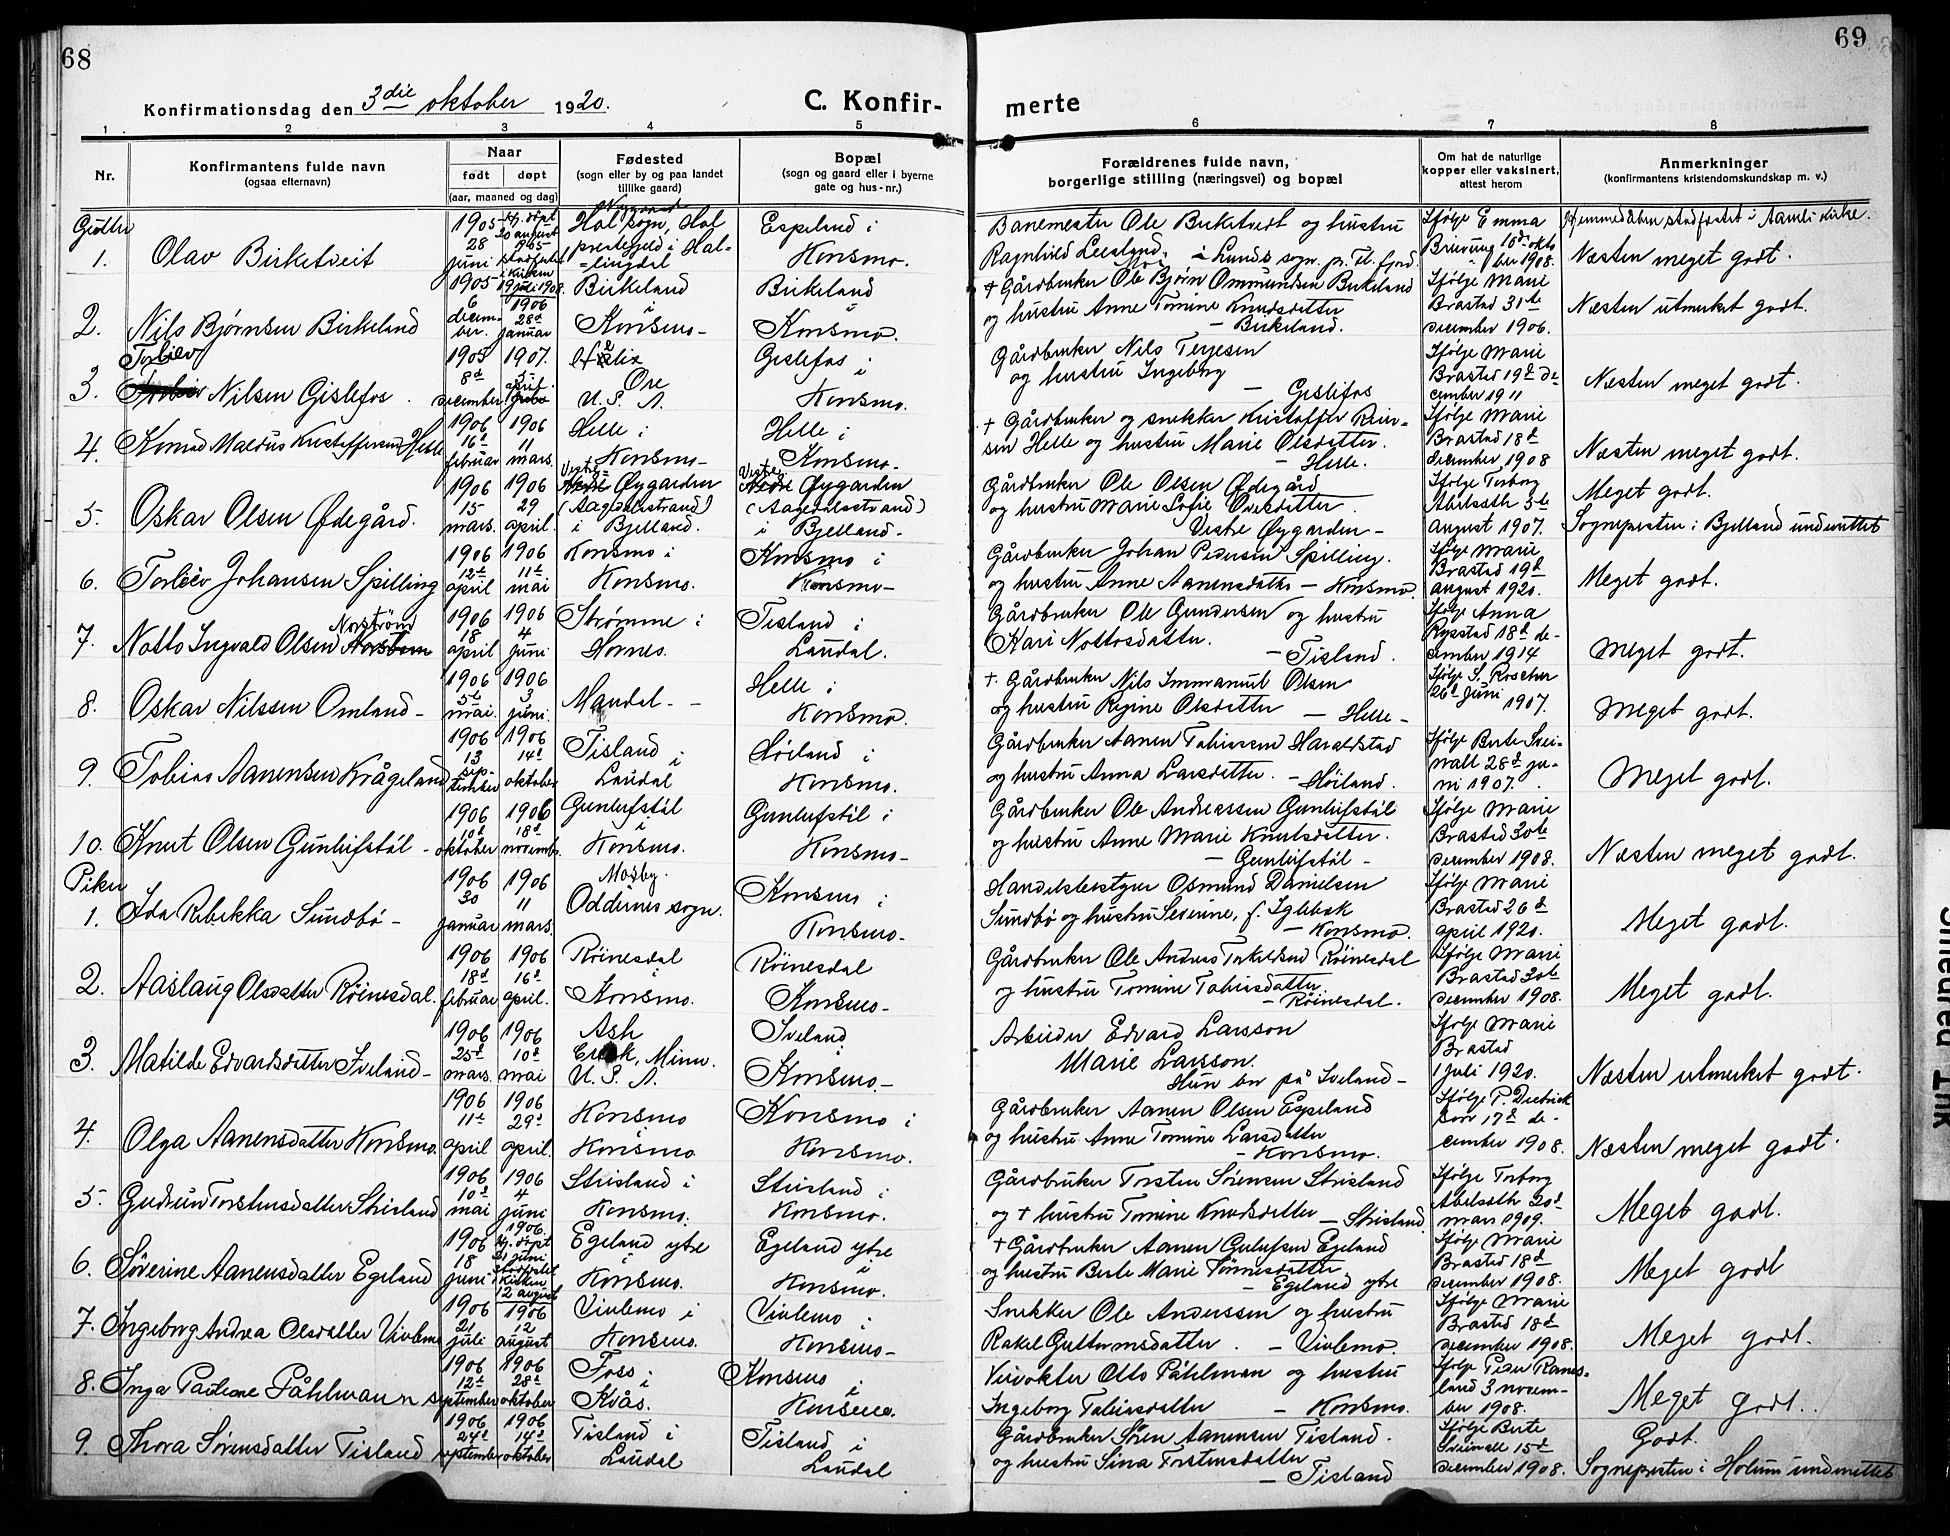 68
69
Konfirmationsdag den 3die oktober 1920.
C. Konfir-
merte
1 2 3 4 5 6 7 8
Nr.
Konfirmantens fulde navn
(ogsaa efternavn)
Naar
født døpt
(aar, maaned og dag)
Fødested
(sogn eller by og paa landet
tillike gaard)
Bopæl
(sogn og gaard eller i byerne
gate og hus-nr.)
Forældrenes fulde navn,
borgerlige stilling (næringsvei) og bopæl
Om hat de naturlige
kopper eller vaksinert,
attest herom
Anmerkninger
(konfirmantens kristendomskundskap m. v.)
Gutter
1. Olav Birketveit
1905 28 juni
Hol sogn, Hol
prestegjeld i Hal-
lingdal
Espeland i
Konsmo.
Banemester Ole Birketveit og hustru
Ragnhild
Ifølge Emma
1908.
Hjemmedåben stadfæstet i Aamli kirke.
Næsten meget godt.
2. Nils Bjørnsen Birkeland
1905 6 decem-
ber.
1906 28d januar
Birkeland
i
Konsmo-
Birkeland
i
Konsmo.
+ Gårdbruker Ole Bjørn Ommundsen Birkeland
og hustru Anne Tomine Knudsdatter
- Birkeland.
Ifølge Marie
Brastad 31te
december 1906.
Næsten utmerket godt.
3. Torleiv Nilsen Gislefos.
1905 8d december
1907. april
Ore
U. S. A.
Gislefos i
Konsmo.
Gårdbruker Nils Terjesen
og hustru Ingeborg
- Gislefos
Ifølge Marie
Brastad 19d de-
cember 1911
Næsten meget godt.
4. Konrad Maldus Kristoffersen Helle
1906 16d februar
1906 11 mars.
Helle i
Konsmo-
Helle i
Konsmo-
+ Gårdbruker og snekker Kristoffer Reier-
sen Helle og hustru Marie Olsdatter.
- Helle.
Ifølge Marie
Brastad 18d
december 1908
Næsten meget godt.
5. Oskar Olsen Ødegård.
1906 15 mars.
1906 29 april.
Vestre Øygarden
(Aagedalsstrand)
i Bjelland.
Vestre Øygarden
(Aagedalsstrand)
i Bjelland-
Gårdbruker Ole Olsen Ødegård
og hustru Marie Sofie Olsdatter
Vestre Øygarden-
Ifølge Torborg
Abelseth 3te
august 1907.
Meget godt.
Sognepresten i Bjelland underrettet
6. Torleiv Johansen Spilling
1906 12te april
1906 11te mai
Konsmo i
Konsmo.
Konsmo i
Konsmo-
Gårdbruker Johan Pedersen Spilling.
og hustru Anne Aanensdatter - Konsmo.
Ifølge Marie
Brastad 19d
august 1920.
Meget godt.
7. Notto Ingvald Olsen Norstrøm
1906 18 april
1906 4 juni
Strømme i
Hornes.
Tisland i
Laudal.
Gårdbruker Ole Gundersen og hustru
Kari Nottosdatter.
- Tisland.
Ifølge Anna
Rysstad 18d de-
cember 1914
Meget godt.
8. Oskar Nilssen Omland-
1906 5te mai.
1906 3 juni.
Mandal-
Helle i
Konsmo.
+ Gårdbruker Nils Immanuel Olsen
og hustru Regine Olsdatter - Helle-
Ifølge S. Roscher
26d juni
1907.
Meget godt.
9. Tobias Aanensen Krågeland
1906 13 sep-
tember
1906 14d oktober
Tisland i
Laudal
Høiland i
Konsmo.
Gårdbruker Aanen Tobiassen Haraldstad
og hustru Anna Larsdatter. - Høiland.
Ifølge Berte Svei-
nall 28d ju-
ni 1907.
Meget godt.
10. Knut Olsen Gunleifstøl-
1906 10d oktober
1906 18d novembr.
Gunleifstøl
i
Konsmo.
Gunleifstøl i
Konsmo-
Gårdbruker Ole Andreassen Gunleifstøl
og hustru Anne Marie Knutsdatter.
- Gunleifstøl-
Ifølge Marie
Brastad 30te
december 1908.
Næsten meget godt.
Piker
1. Ida Rebekka Sundbø-
1906 30 januar
1906 11 mars.
Mosby.
Oddernes sogn.
Konsmo i
Konsmo-
Handelsbestyrer Osmund Danielsen
Sundbø og hustru Severine, f. Iglebæk
- Konsmo.
Ifølge Marie
Brastad 26d
april 1920.
Meget godt.
2. Aaslaug Olsdatter Röinesdal.
1906 18d februar
1906 16d april.
Röinesdal
i
Konsmo.
Röinesdal
Konsmo-
Gårdbruker Ole Andreas Torkeldsen Röinesdal
og hustru Tomine Tobiasdatter.
- Röinesdal.
Ifølge Marie
Brastad 30te
december 1908.
Meget godt.
3. Matilde Edvardsdatter Iveland-
1906 25d mars.
1906 10d mai
Ash
Creek, Minn.
U. S. A.
Iveland
Konsmo-
Arbeider Edvard Larsson
Marie Larsson.
Hun bor på Iveland-
Ifølge Marie
Brastad
1 juli 1920.
Næsten utmerket godt.
4. Olga Aanensdatter Konsmo.
1906 11te april
1906 29d april.
Konsmo
i
Konsmo
Konsmo i
Konsmo.
Gårdbruker Aanen Olsen Espeland
og hustru Anne Tomine Larsdatter
- Konsmo.
Ifølge P. Diedrick
17d de-
cember 1908.
Næsten meget godt.
5. Gudrun Torstensdatter Strisland
1906 10d mai
1906 4 juni
Strisland i
Konsmo.
Strisland i
Konsmo.
Gårdbruker Torsten Sørensen Strisland
og + hustru Tomine Knudsdatter - Strisland.
Ifølge Torborg
Abelseth 20d
mars 1909.
Meget godt.
6. Søverine Aanensdatter Egeland
1906 18 juni
1906.
12 august
Egeland ytre
i
Konsmo.
Egeland ytre
i
Konsmo.
+ Gårdbruker Aanen Gulufsen Egeland
og hustru Berte Marie Tønnesdatter
- Egeland ytre
Ifølge Marie
Brastad 18d
december 1908.
Meget godt
7. Ingeborg Andrea Olsdatter Vivlemo
1906 21 juli
1906 12 august
Vivlemo i
Konsmo.
Vivlemo i
Konsmo-
Snekker Ole Anderssen og hustru
Rakel Guttormsdatter. - Vivlemo.
Ifølge Marie
Brastad 18d
december 1908.
Meget godt.
8. Inga Pauline Påhlmann
1906 12te september
1906 28d oktober
Foss i
Kvås.
Konsmo i
Konsmo.
Veivokter Otto Påhlman og hustru
Ingeborg Tobiasdatter - Konsmo.
Ifølge Peder Rams-
land 3 novem-
ber 1908.
Meget godt.
9. Thora Sørensdatter Tisland
1906 24d september
1906 14d oktober
Tisland i
Laudal
Tisland i
Laudal
Gårdbruker Søren Aanensen Tisland.
og hustru Sina Torstensdatter
- Tisland
Ifølge Berte
Sveinall 15d
december 1908.
Godt.
Sognepresten i Holum underrettet